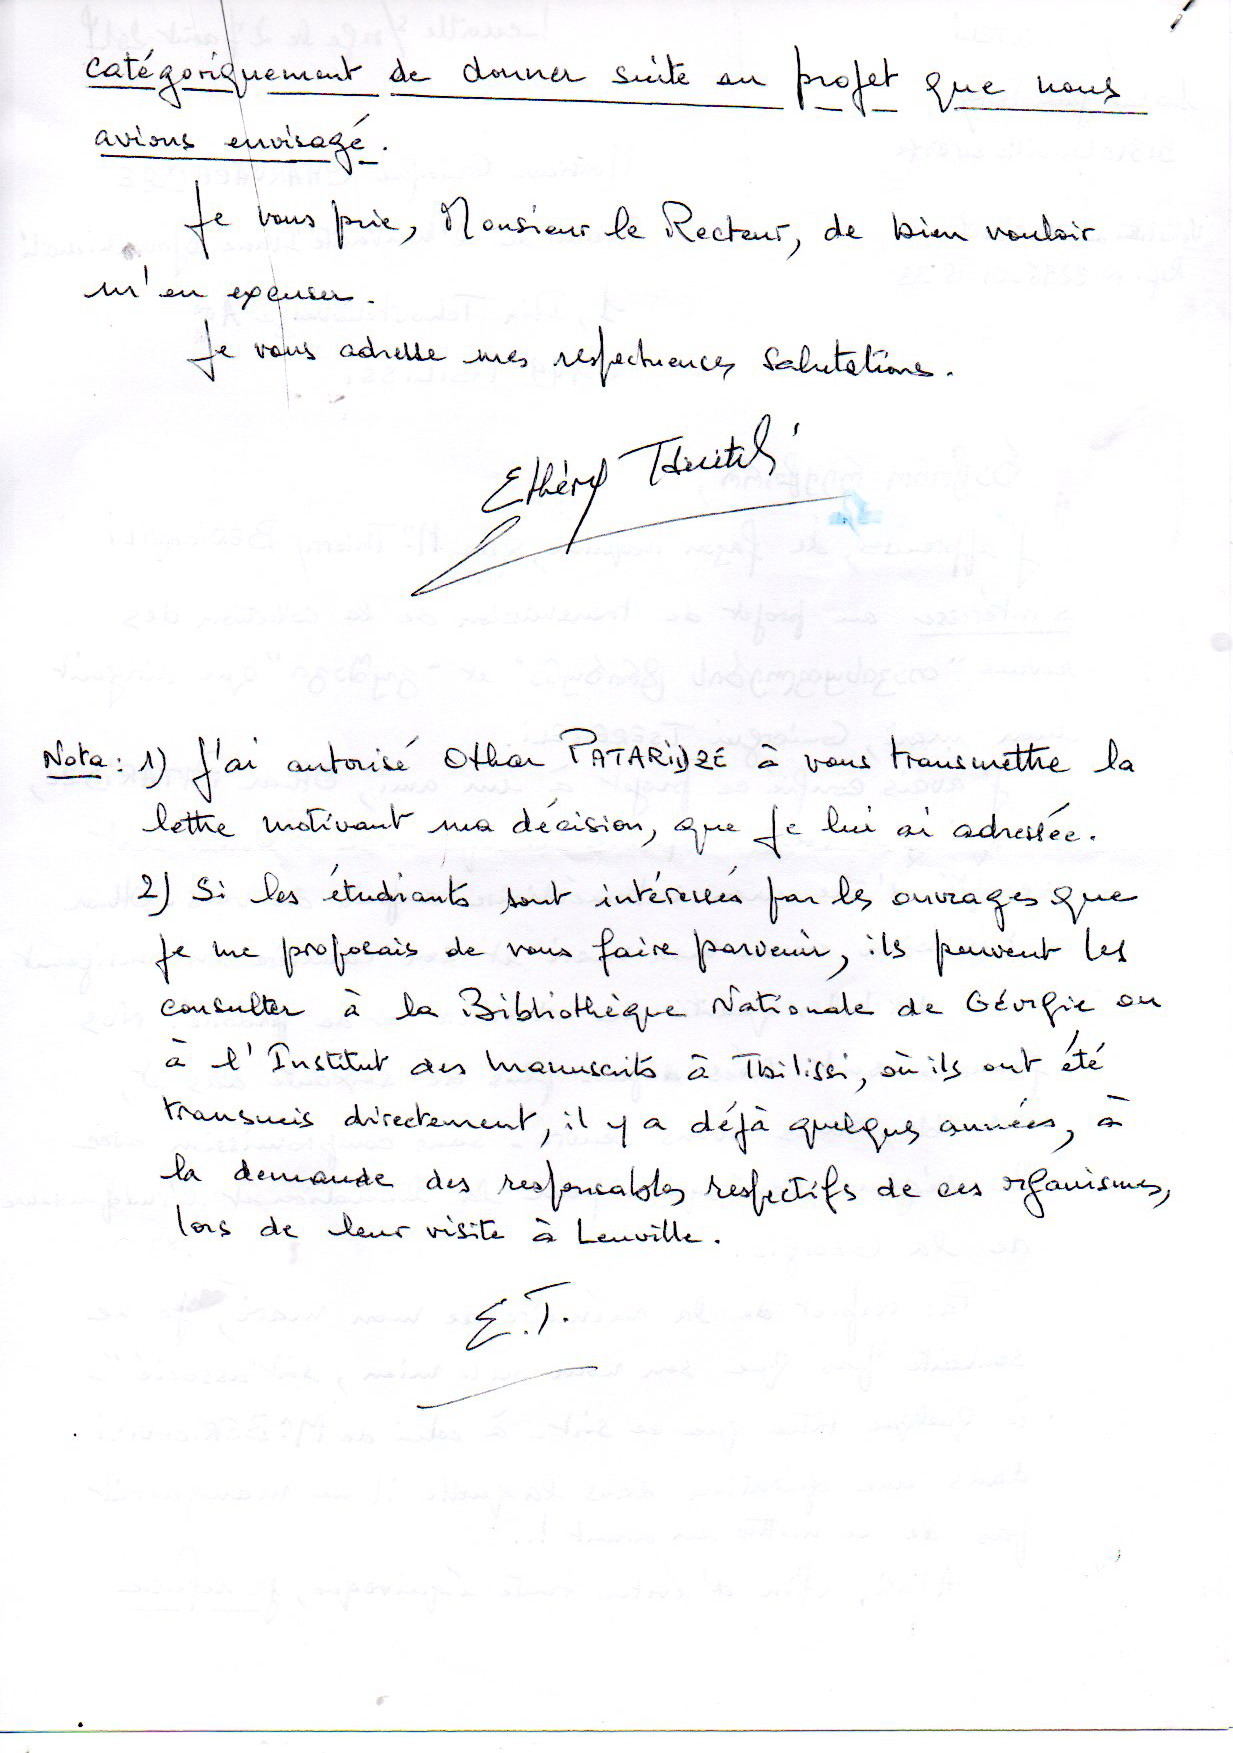 catégoriquement de donner suite au projet que nous
avions envisagé.
Je vous prie, Monsieur le Recteur, de bien vouloir
m'en excuser.
Je vous adresse mes respectueuses salutations.
Ethéry
Nota : 1) J'ai autorisé Othar PATARIDZÉ à vous transmettre la
lettre motivant ma décision, que je lui ai adressée.
2) Si les étudiants sont intéressés par les ouvrages que
je me proposais de vous faire parvenir, ils peuvent les
consulter à la Bibliothèque Nationale de Géorgie ou
à l'Institut des manuscrits à Tbilissi, où ils ont été
transmis directement, il y a déjà quelques années, à
la demande des responsables respectifs de ces organismes,
lors de leur visite à Leuville.
E.T.